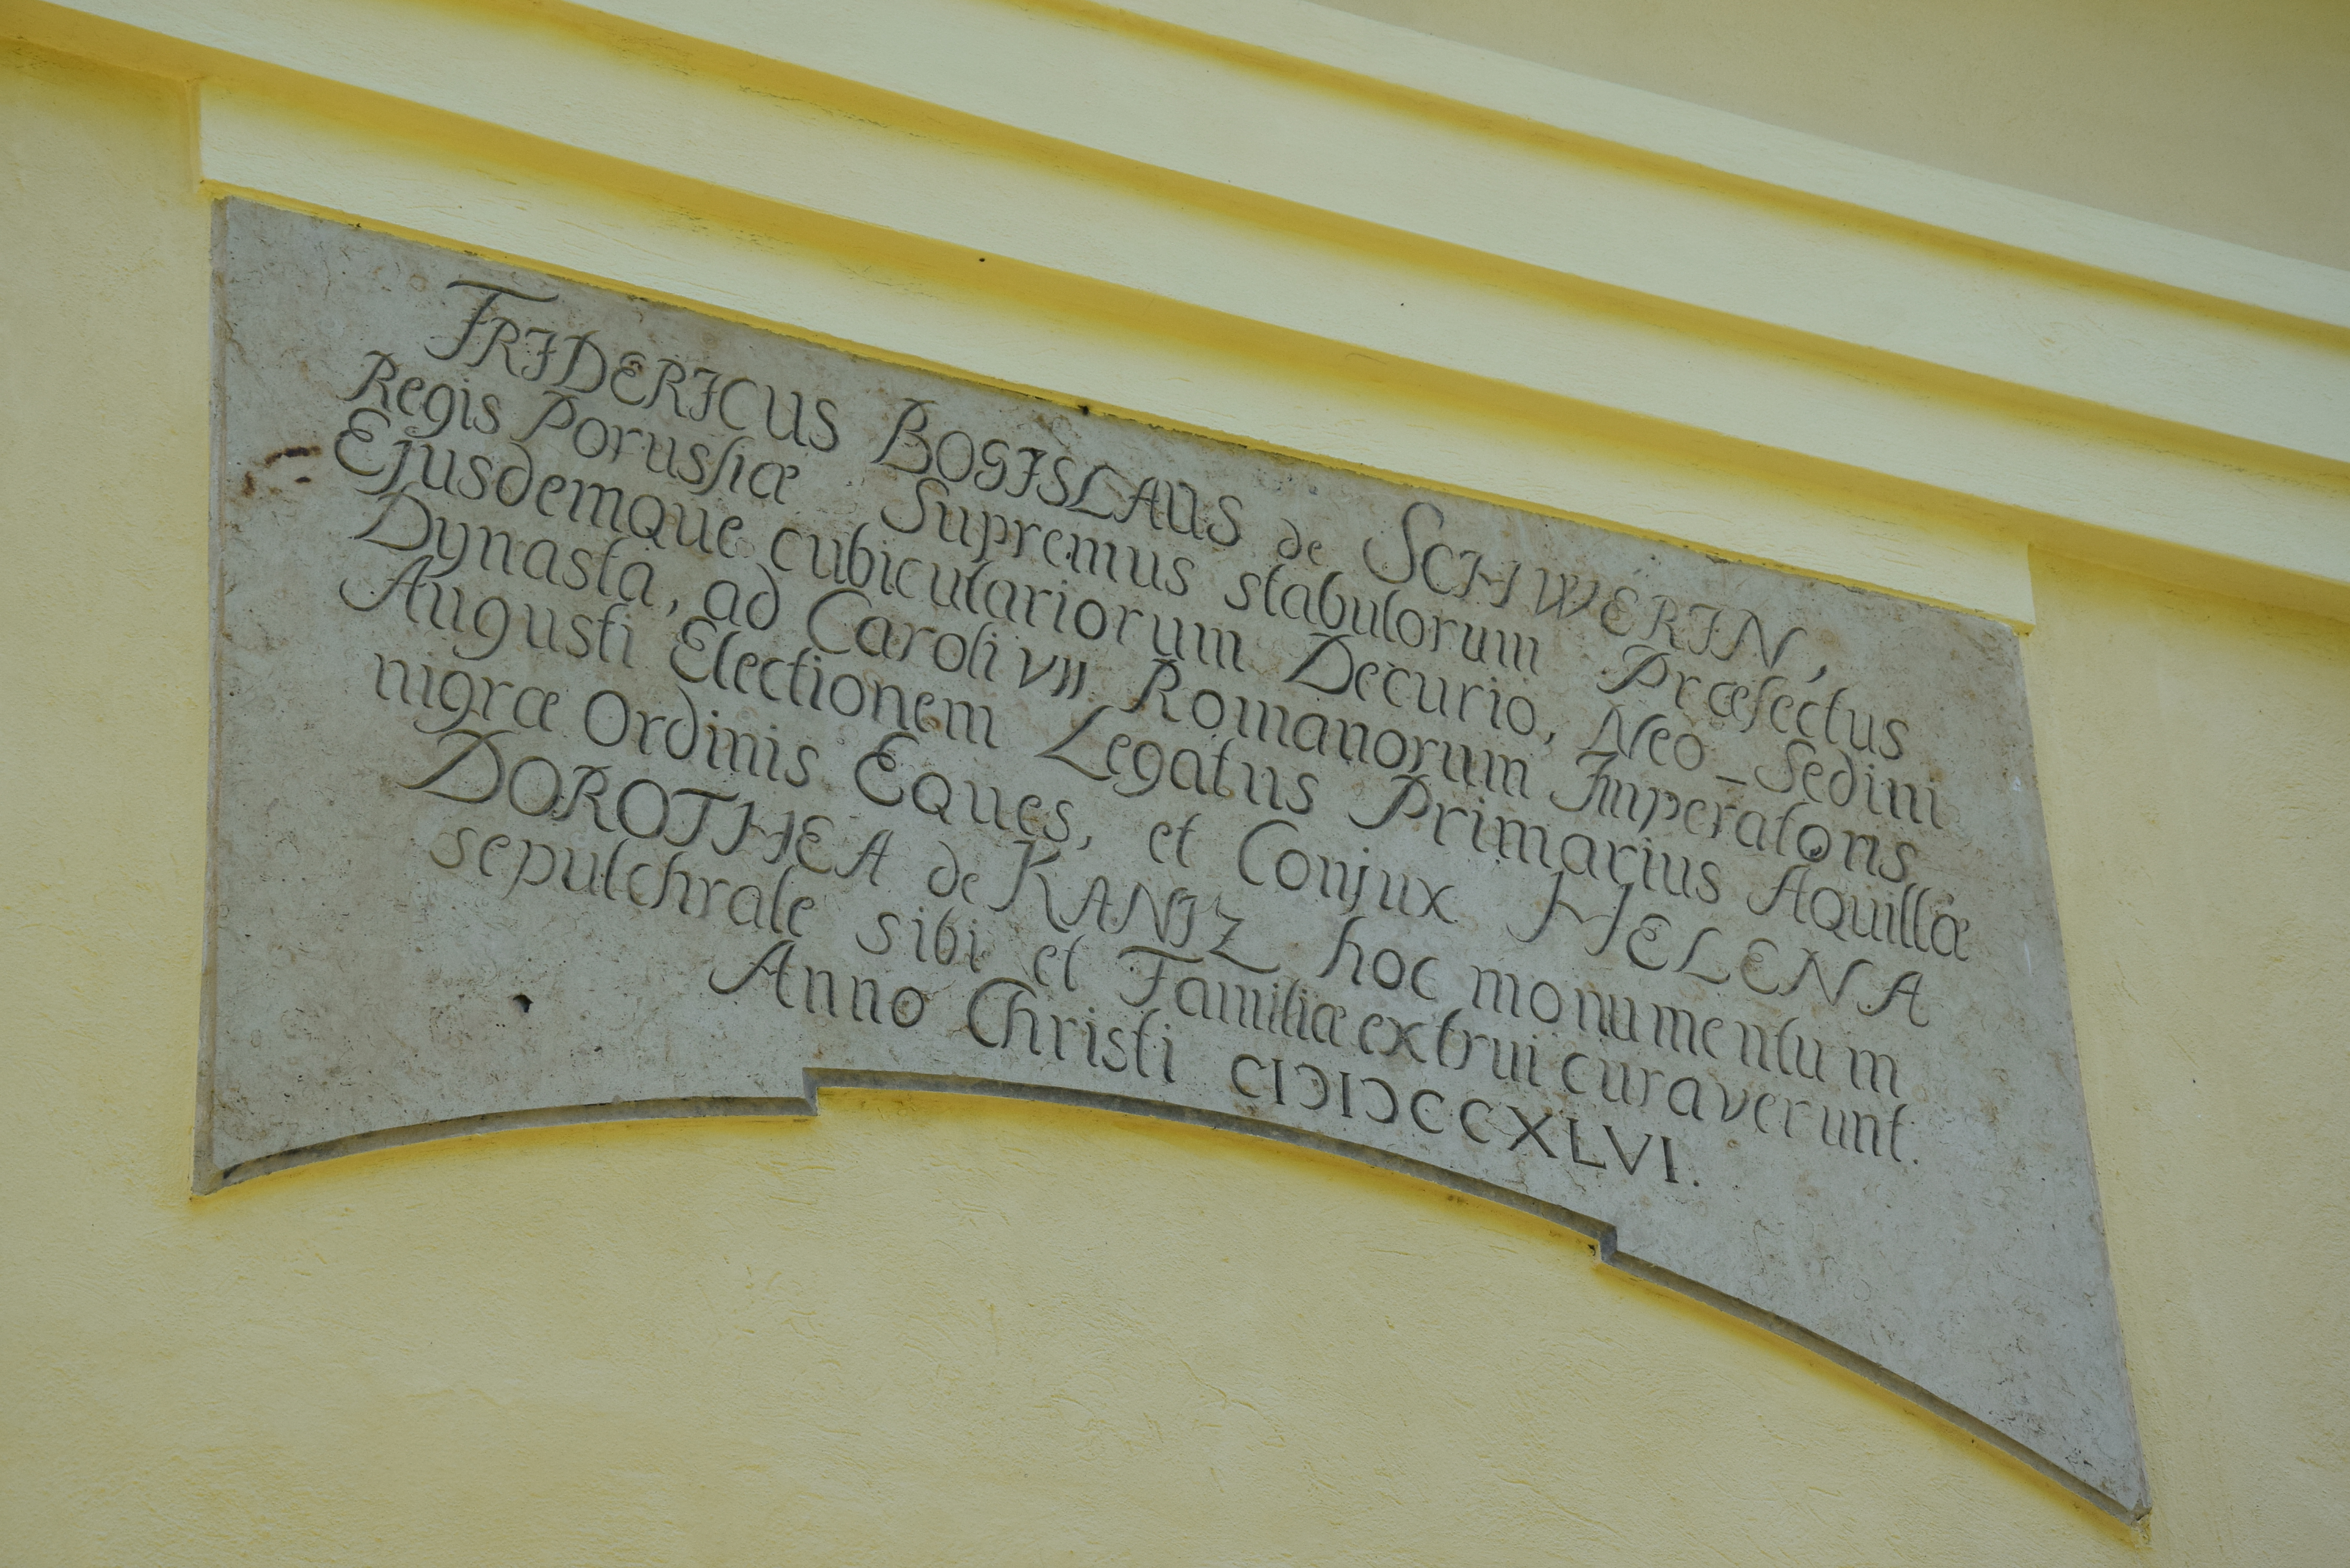 FRIDERICUS BOGISLAUS de SCHWERIN,
Regis Porussiæ Supremus stabulorum Præfectus
Ejusdemque cubiculariorum Decurio, Neo-Sedini
Dynasta, ad Caroli VII. Romanorum Imperatoris
Augusti Electionem Legatus Primarius Aquillæ
nigræ Ordinis Eques, et Conjux HELENA
DOROTHEA de KANIZ hoc monumentum
sepulchrale sibi et Familiæ extrui curaverunt.
Anno Christi CIƆIƆCCXLVI.